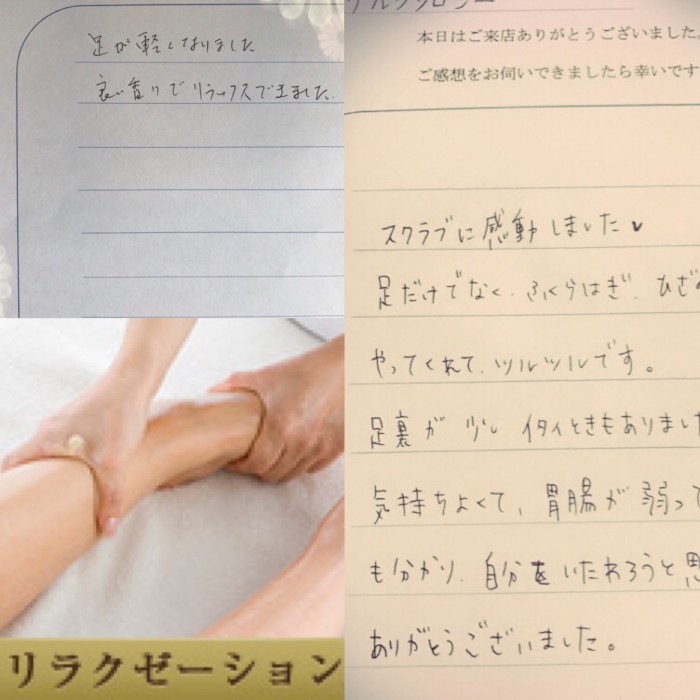 足が軽くなりました
良い香りでリラックスできました.
本日はご来店ありがとうございました。
ご感想をお伺いできましたら幸いです
スクラブに感動しました♥
足だけでなく、ふくらはぎ、ひざ
やってくれて、ツルツルです。
足裏が少しイタイときもありました
気持ちよくて、胃腸が弱って
も分かり、自分をいたわろうと思
ありがとうございました。
リラクゼーション